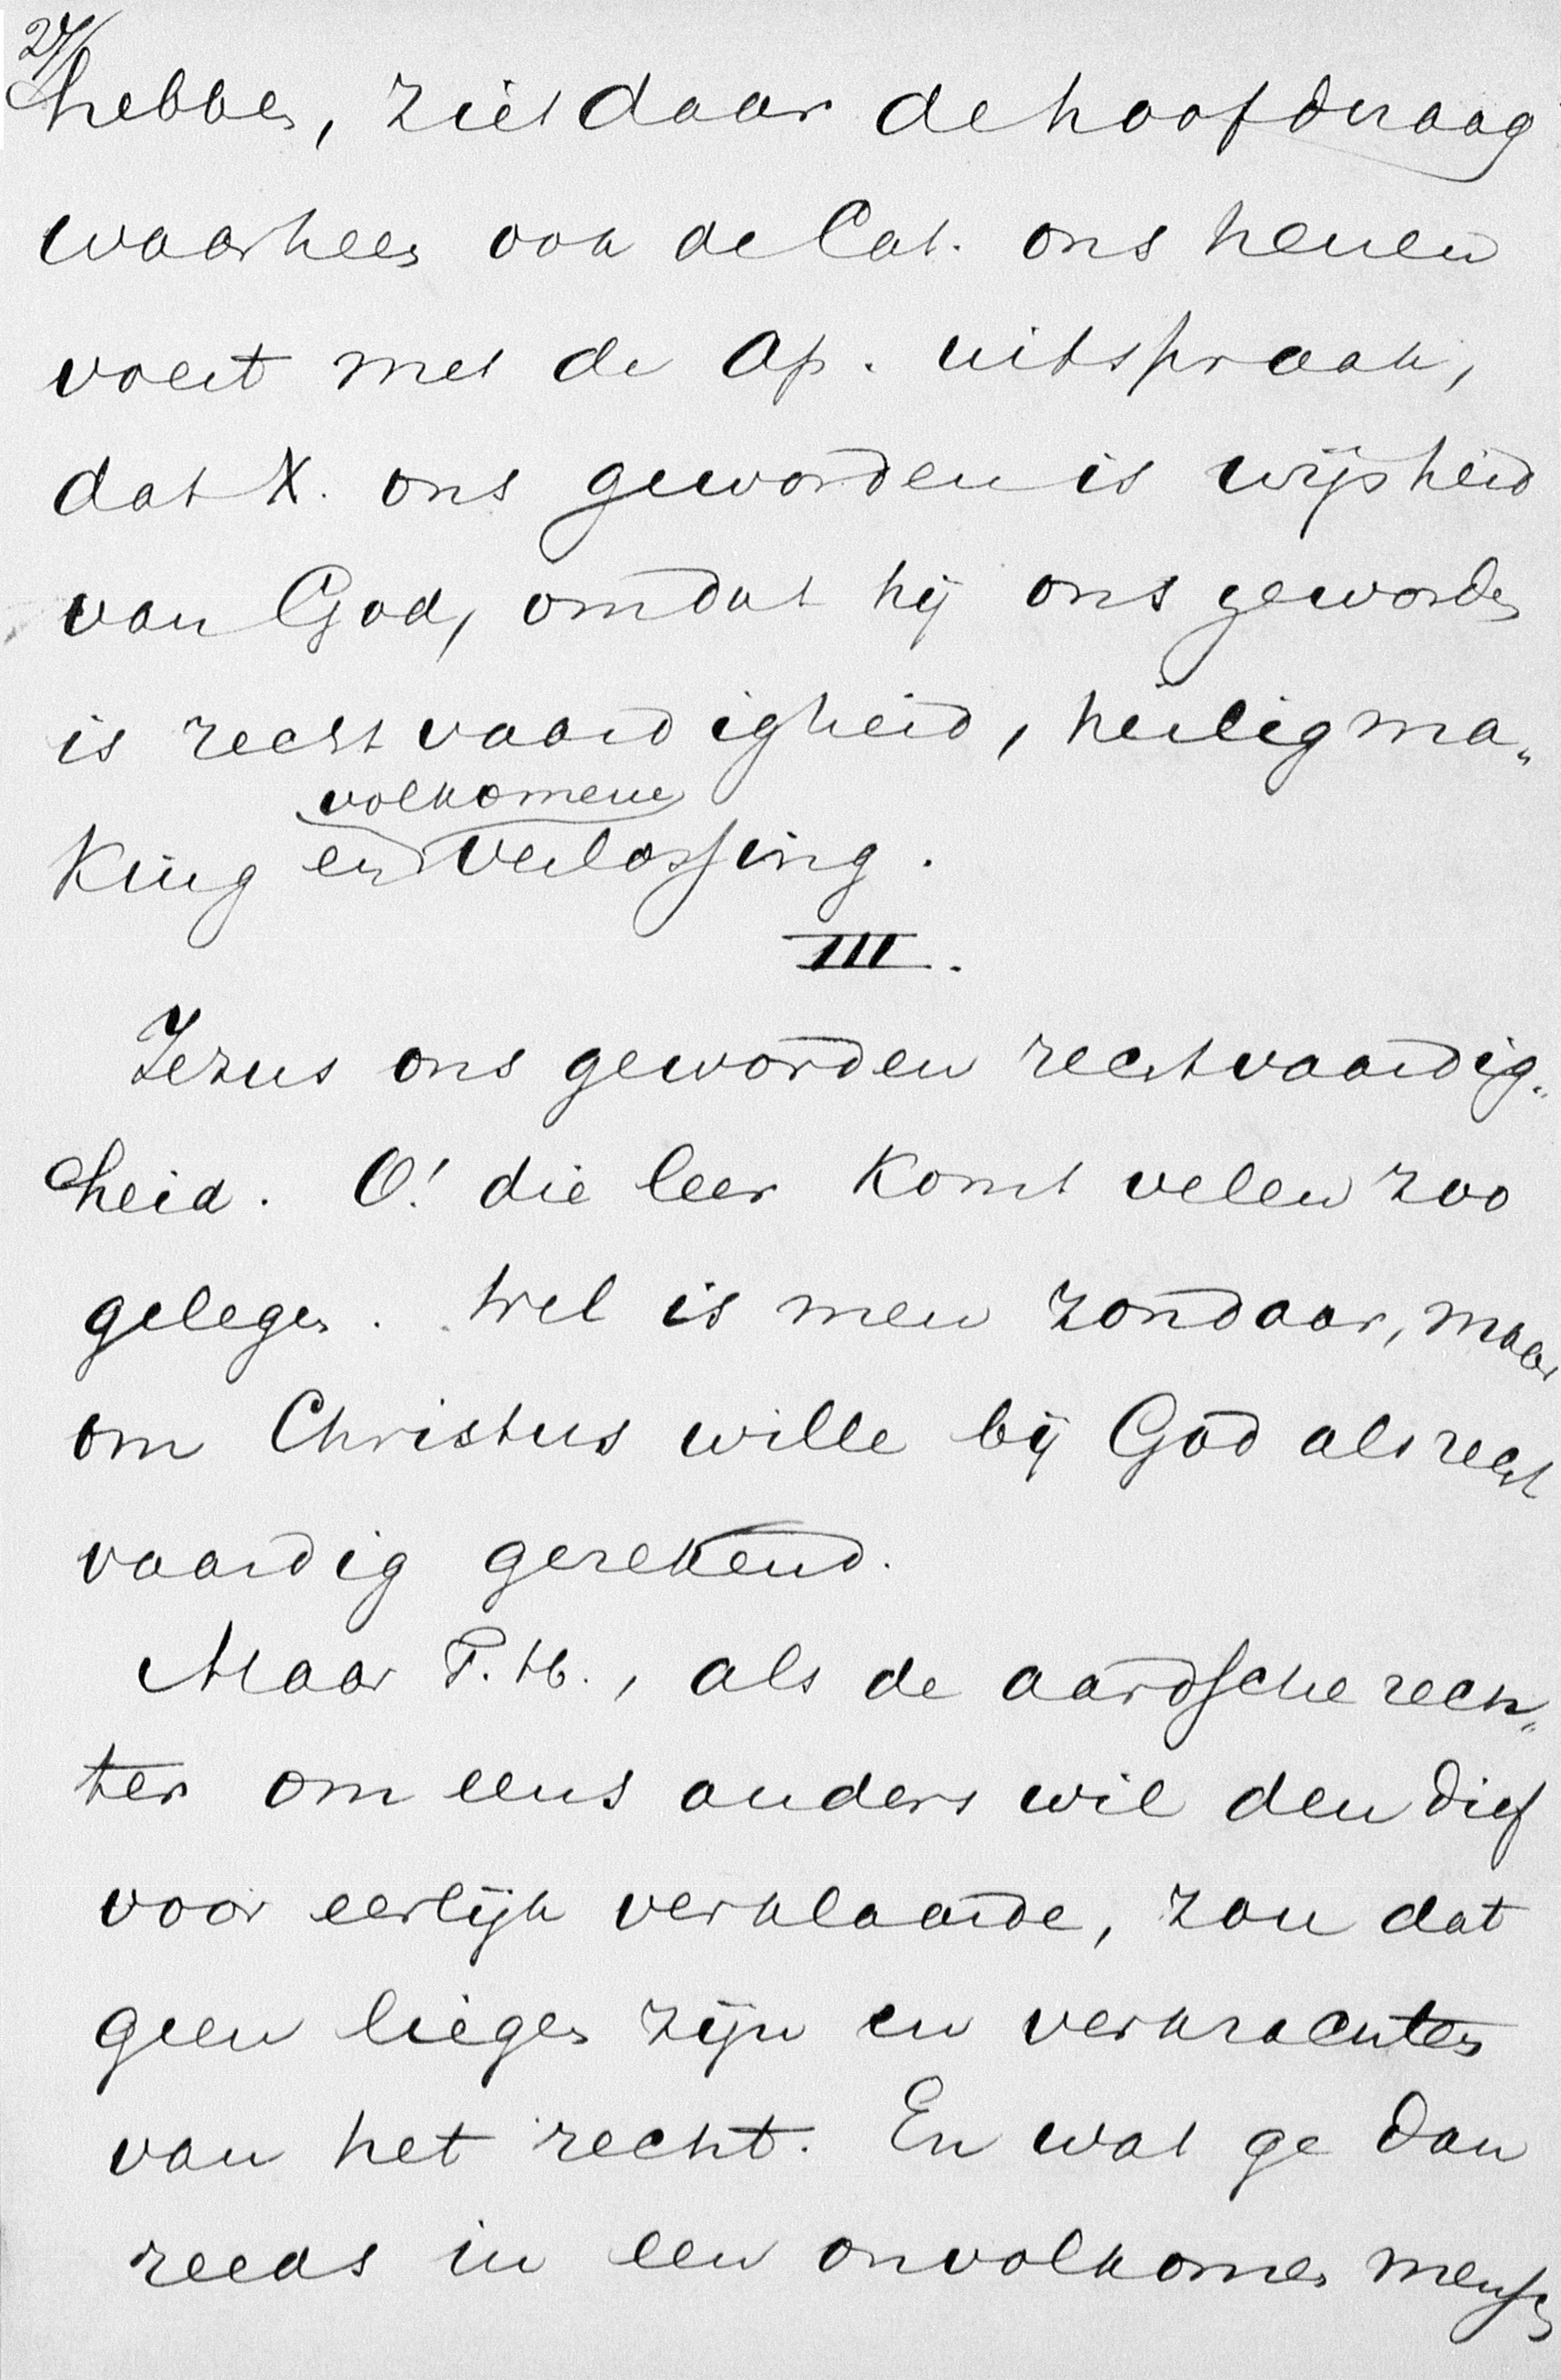 27/
hebben, ziet daar de hoofdvraag
waarheen ook de Cat. ons henen
voert met de Ap. uitspraak,
dat X. ons geworden is wijsheid
van God, omdat hij ons geworden
is rechtvaardigheid, heiligma„
volkomene
king en verlossing.
III.
Jezus ons geworden rechtvaardig„
heid. O! die leer komt velen zoo
gelegen. Wel is men zondaar, maar
om Christus wille bij God als recht
vaardig gerekend.
Maar T. H., als de aardsche rech„
ter om eens anders wil den dief
voor eerlijk verklaarde, zou dat
geen liegen zijn en verkrachten
van het recht. En wat ge dan
reeds in een onvolkomen mensch